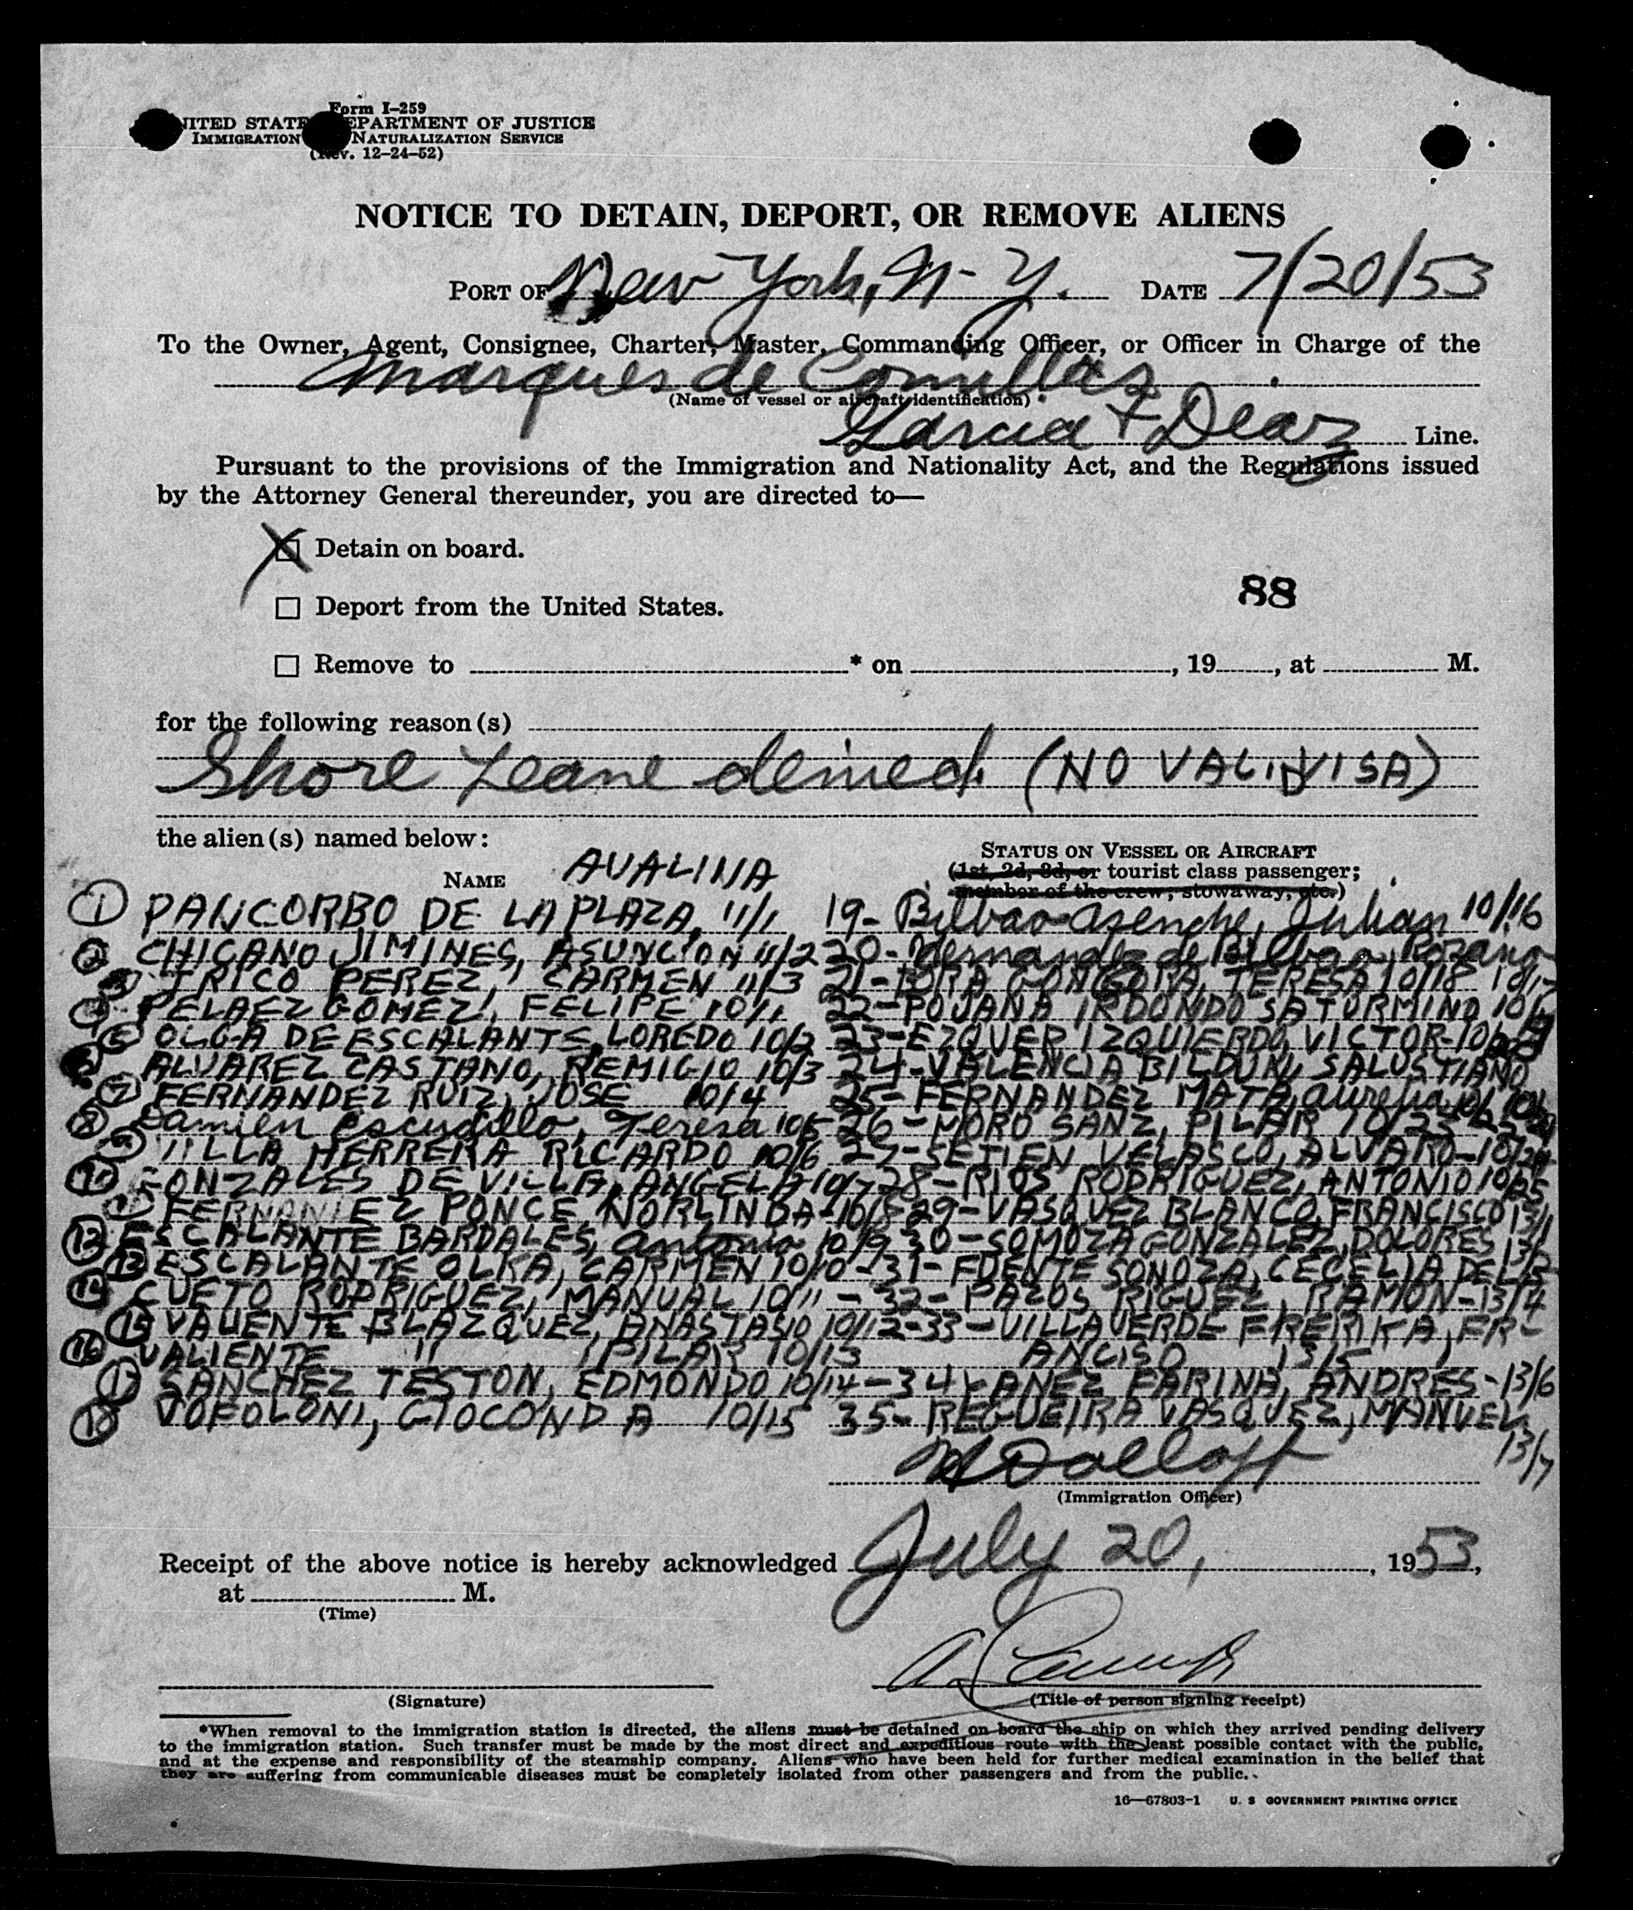 Form I-259
UNITED STATES DEPARTMENT OF JUSTICE
IMMIGRATION NATURALIZATION SERVICE
(Rev. 12-24-52)
NOTICE TO DETAIN, DEPORT, OR REMOVE ALIENS
PORT OF New York, N-Y. DATE 7/20/53
To the Owner, Agent, Consignee, Charter, Master, Commanding Officer, or Officer in Charge of the
Marques de Comillas
(Name of vessel or aircraft identification)
Garcia + Diaz Line.
Pursuant to the provisions of the Immigration and Nationality Act, and the Regulations issued
by the Attorney General thereunder, you are directed to—
X Detain on board.
88
☐ Deport from the United States.
☐ Remove to * on , 19 , at M.
for the following reason(s)
Shore Leave denied. (NO VALID VISA)
the alien(s) named below:
STATUS ON VESSEL OR AIRCRAFT
(1st, 2d, 3d, or tourist class passenger;
NAME AVALINA
member of the crew; stowaway, etc.)
1 PANCORBO DE LA PLAZA, 11/1 19- Bilbao Asenche, Julian 10/16
2 CHICANO JIMINES, ASUNCION 11/2 20- Hernandez de Bilbao, 
3 TRICO PEREZ, CARMEN 11/3 21- GONGORA, TERESA 10/18 10/17
4 PELAEZ GOMEZ, FELIPE 10/1 22- POJANA SATURMINO
5 OLGA DE ESCALANTE, LOREDO 10/2 23- EZQUER IZQUIERDO, VICTOR-
6 ALVAREZ CASTANO, REMIGIO 10/3 24- VALENCIA SALUSTIANO
7 FERNANDEZ RUIZ, JOSE 10/4 25- FERNANDEZ MATA, Aurelia
8 Damien Escudillo, Teresa 10/5 26- MORO SANZ, PILAR 10/23
9 VILLA HERRERA RICARDO 10/6 27- SETIEN VELASCO, ALVARO-10/24
10 GONZALES DE VILLA, ANGELA 10/7 28- RIOS RODRIGUEZ, ANTONIO 10/25
11 FERNANDEZ PONCE NORLINDA-10/8 29- VASQUEZ BLANCO, FRANCISCO 13/1
12 ESCALANTE BARDALES, Antonio 10/9 30- SOMOZA GONZALEZ, DOLORES 13/2
13 ESCALANTE OLKA, CARMEN 10/10 -31- FUENTE SONOZA, CECELIA DE LA
14 CUETO RODRIGUEZ, MANUAL 10/11 -32- PAZOS RIGUEZ, RAMON-13/4
15 VALIENTE BLAZQUEZ, ANASTASIO 10/12-33- VILLAVERDE FRERIRA, FR-
16 VALIENTE " , PILAR 10/13 ANCISO 13/5
17 SANCHEZ TESTON, EDMONDO 10/14-34 YANEZ FARINA, ANDRES-13/6
18 VOFOLONI, GIOCONDA 10/15 35- REGUEIRA VASQUEZ, MANUEL
13/7
(Immigration Officer)
Receipt of the above notice is hereby acknowledged July 20, , 1953,
at M.
(Time)
(Signature) (Title of person signing receipt)
*When removal to the immigration station is directed, the aliens must be detained on board the ship on which they arrived pending delivery
to the immigration station. Such transfer must be made by the most direct and expeditious route with the least possible contact with the public,
and at the expense and responsibility of the steamship company. Aliens who have been held for further medical examination in the belief that
they are suffering from communicable diseases must be completely isolated from other passengers and from the public.
16—67803-1 U. S GOVERNMENT PRINTING OFFICE